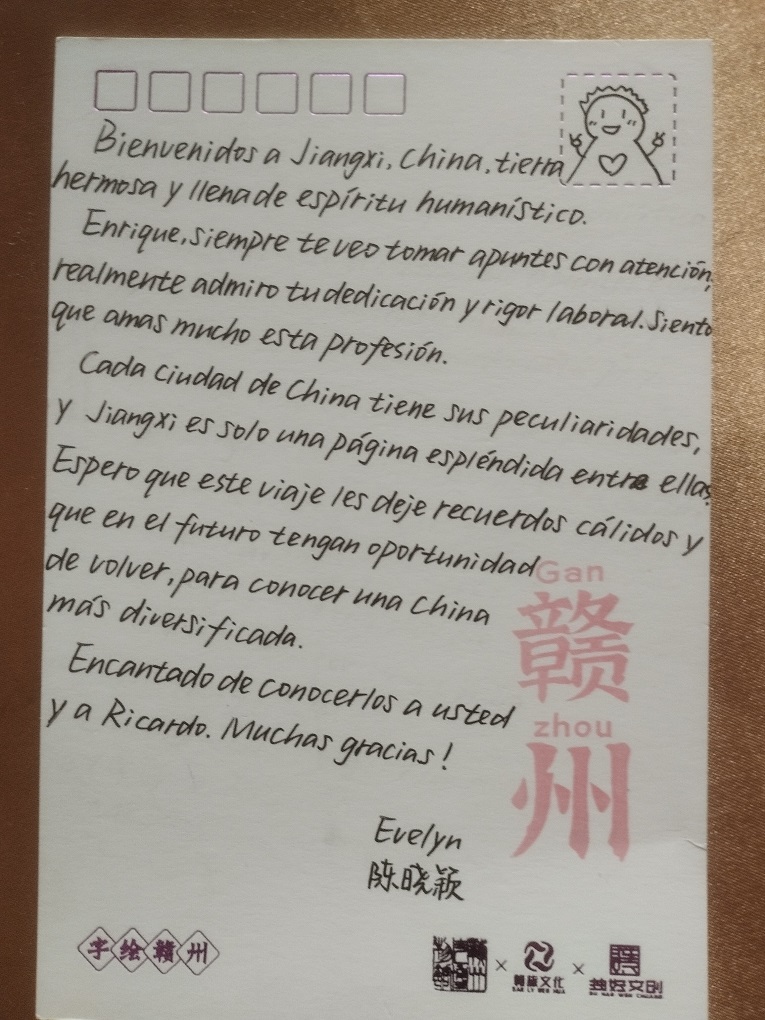 Bienvenidos a Jiangxi, China, tierra
hermosa y llena de espíritu humanístico.
Enrique, siempre te veo tomar apuntes con atención,
realmente admiro tu dedicación y rigor laboral. Siento
que amas mucho esta profesión.
Cada ciudad de China tiene sus peculiaridades,
y Jiangxi es solo una página espléndida entre ellas.
Espero que este viaje les deje recuerdos cálidos y
que en el futuro tengan oportunidad
de volver, para conocer una China
más diversificada.
Encantado de conocerlos a usted
y a Ricardo. Muchas gracias!
Gan
赣
zhou
州
Evelyn
陈晓颖
字绘赣州
× 赣旅文化 ×